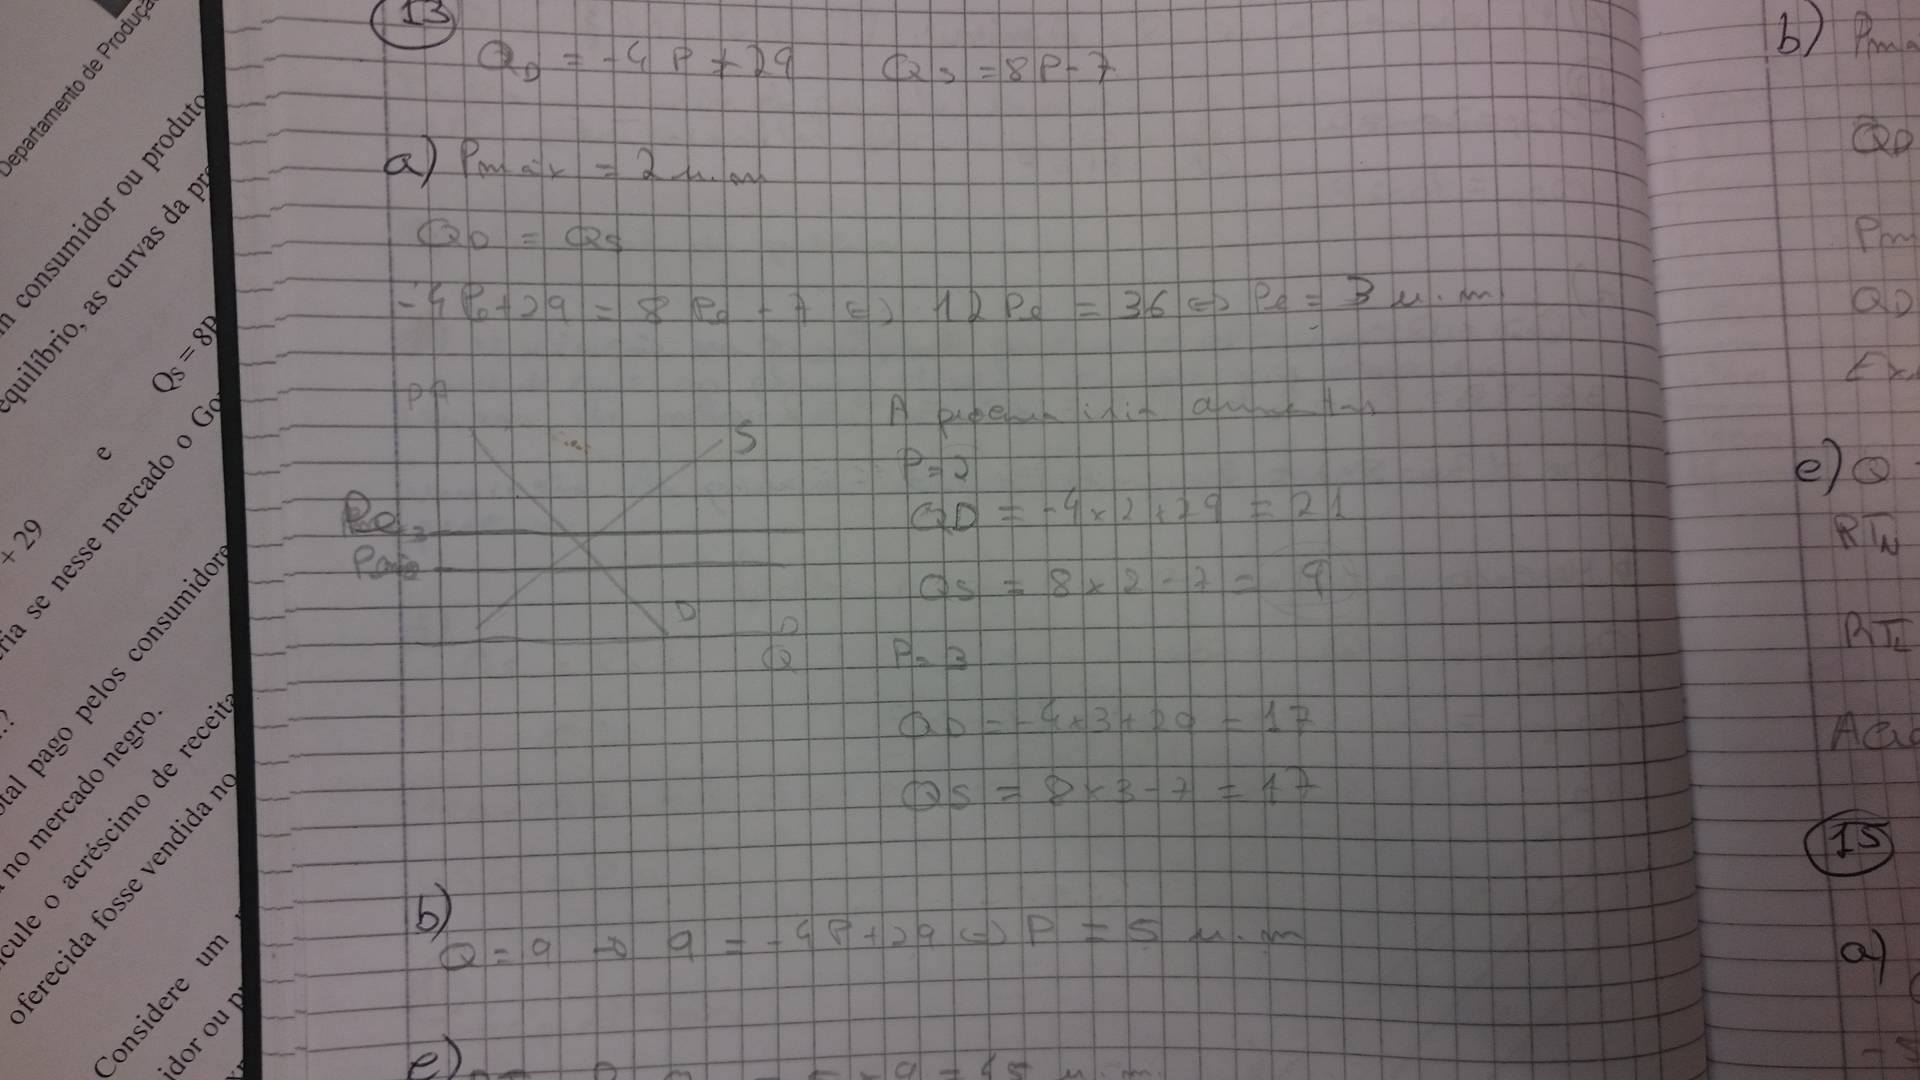 Departamento de Produçã
m consumidor ou produto
equilíbrio, as curvas da pr
+ 29 e Qs = 8P
ria se nesse mercado o Go
?
otal pago pelos consumidore
no mercado negro.
cule o acréscimo de receita
oferecida fosse vendida no
Considere um
idor ou p
13
QD = -4P+29 QS = 8P-7
a) Pmáx = 2 u.m
QD = QS
-4Pe+29 = 8Pe-7 <=> 12Pe = 36 <=> Pe = 3 u.m
P
S
Pe
D
Q
A aumentar
P=2
QD = -4×2+29 = 21
QS = 8×2-7 = 9
P=3
QD = -4×3+29 = 17
QS = 8×3-7 = 17
b)
Q = 9 → 9 = -4P+29 <=> P = 5 u.m
c) 9 = 45 u.m.
b) Pm
QD
Pm
QD
Ex
c) Q
RTN
RTL
15
a)